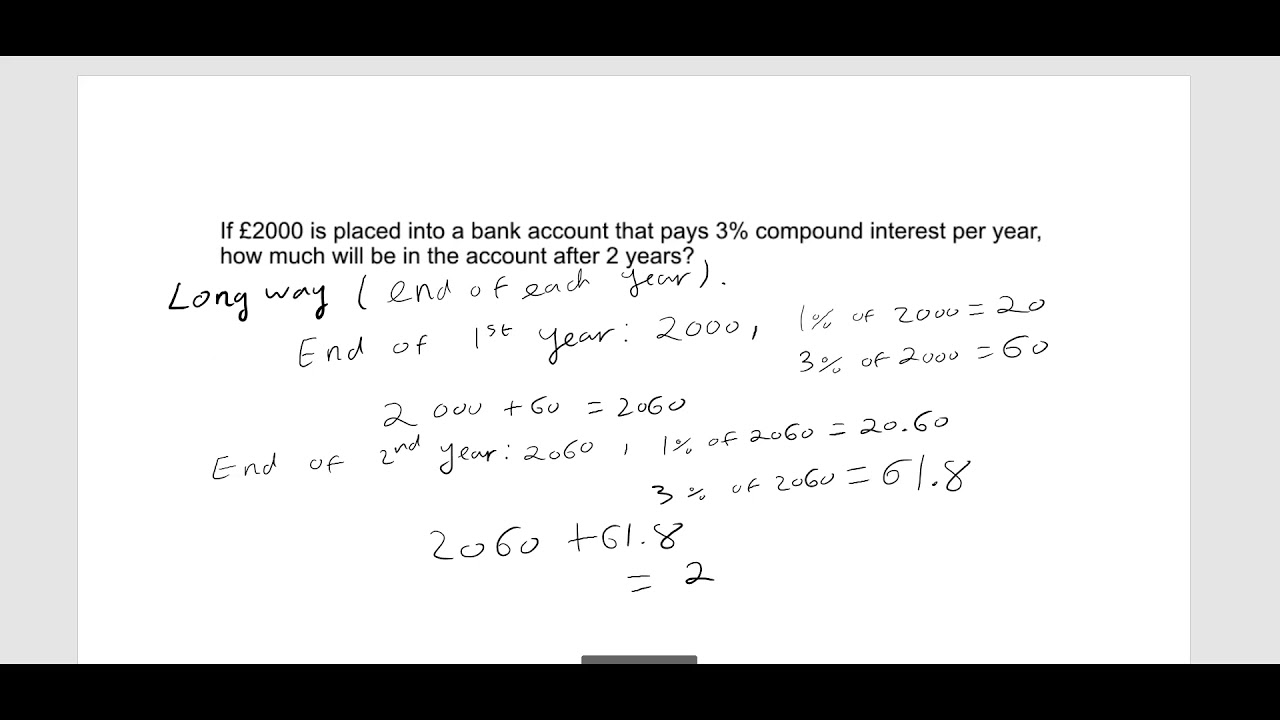 If £2000 is placed into a bank account that pays 3% compound interest per year,
how much will be in the account after 2 years?
Long way (end of each year).
End of 1st year: 2000, 1% of 2000 = 20
3% of 2000 = 60
2000 + 60 = 2060
End of 2nd year: 2060, 1% of 2060 = 20.60
3% of 2060 = 61.8
2060 + 61.8
= 2